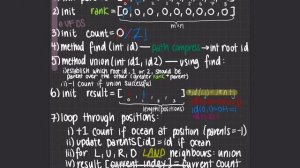 2) init rank = [0, 0, 0, 0, 0, 0, 0, 0, 0]
m*n
UF DS
3) init count = 0 / Z!
4) method find (int id) — path compress → int root id
5) method union (int id1, id2) — using find:
i) establish which root id, 1 or 2, should be
parent over the other (greater rank = parent)
ii) -1 count if union successful
6) init result = [
length(positions)
7) loop through positions:
i) +1 count if ocean at position (parents = -1)
ii) update parents[id] = id if ocean
iii) for L, U, R, D LAND neighbours: union
iv) result [current index] = current count